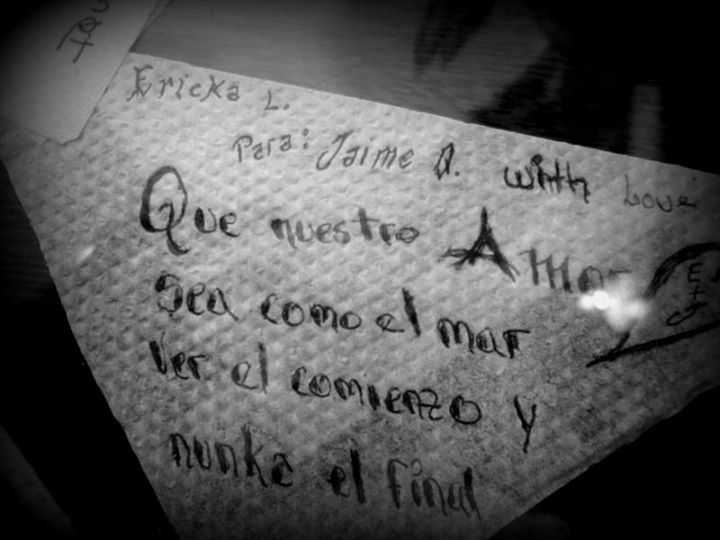 Ericka L.
Para: Jaime Q. with Love
Que nuestro Amor
Sea como el mar
Ver el comienzo y
nunka el final
E
+
J